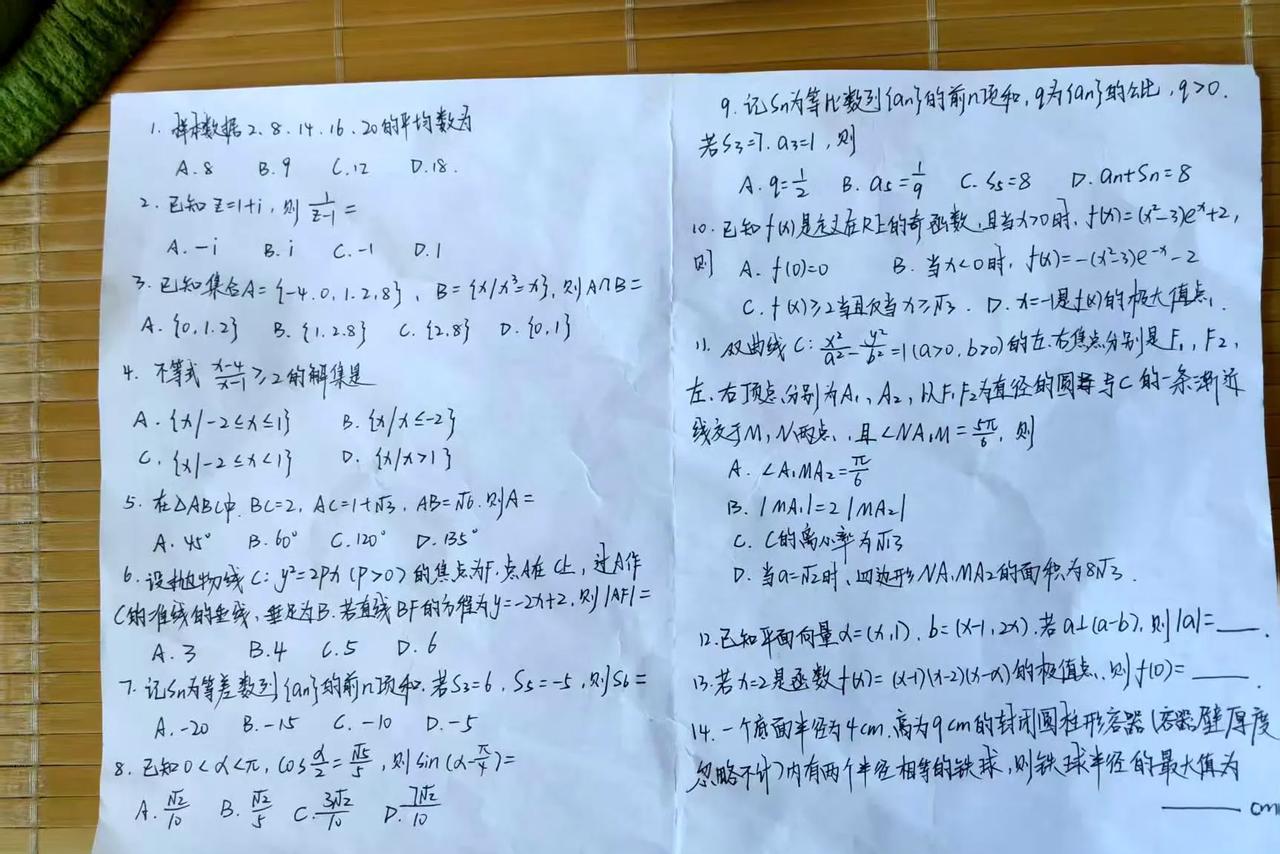 1. 样本数据2.8.14.16.20的平均数为
A.8 B.9 C.12 D.18.
2. 已知z=1+i,则 1/(z-1) =
A.-i B.i C.-1 D.1
3. 已知集合A={-4.0.1.2.8}, B={x/x³=x},则A∩B=
A.{0.1.2} B.{1.2.8} C.{2.8} D.{0.1}
4. 不等式 (x-4)/(x-1) ≥2的解集是
A.{x/-2≤x≤1} B.{x/x≤-2}
C.{x/-2≤x<1} D.{x/x>1}
5. 在△ABC中.BC=2, AC=1+√3, AB=√6.则A=
A.45° B.60° C.120° D.135°
6. 设抛物线C:y²=2px(p>0)的焦点为F.点A在C上,过A作
C的准线的垂线,垂足为B.若直线BF的方程为y=-2x+2,则|AF|=
A.3 B.4 C.5 D.6
7. 记Sn为等差数列{an}的前n项和.若S3=6, S5=-5,则S6=
A.-20 B.-15 C.-10 D.-5
8. 已知0<α<π, cos α/2 = √5/5,则sin(α-π/4)=
A. √2/10 B. √2/5 C. 3√2/10 D. 7√2/10
9. 记Sn为等比数列{an}的前n项和,q为{an}的公比,q>0.
若S3=7.a3=1,则
A.q=1/2 B.a5=1/9 C.S5=8 D.an+Sn=8
10. 已知f(x)是定义在R上的奇函数,且当x>0时.f(x)=(x²-3)eˣ+2,
则 A.f(0)=0 B.当x<0时,f(x)=-(x²-3)e⁻ˣ-2
C.f(x)≥2当且仅当x≥√3. D.x=-1是f(x)的极大值点.
11. 双曲线C: x²/a² - y²/b² =1(a>0,b>0)的左.右焦点分别是F1,F2,
左.右顶点分别为A1,A2,以F1F2为直径的圆与C的一条渐近
线交于M,N两点,且∠NA1M=5π/6,则
A.∠A1MA2=π/6
B.|MA1|=2|MA2|
C.C的离心率为√13
D.当a=√2时,四边形NA1MA2的面积为8√3.
12.已知平面向量a=(x,1).b=(x-1,2x).若a⊥(a-b),则|a|=___.
13.若x=2是函数f(x)=(x-1)(x-2)(x-a)的极值点,则f(0)=____.
14.一个底面半径为4cm.高为9cm的封闭圆柱形容器(容器壁厚度
忽略不计)内有两个半径相等的铁球,则铁球半径的最大值为
____cm